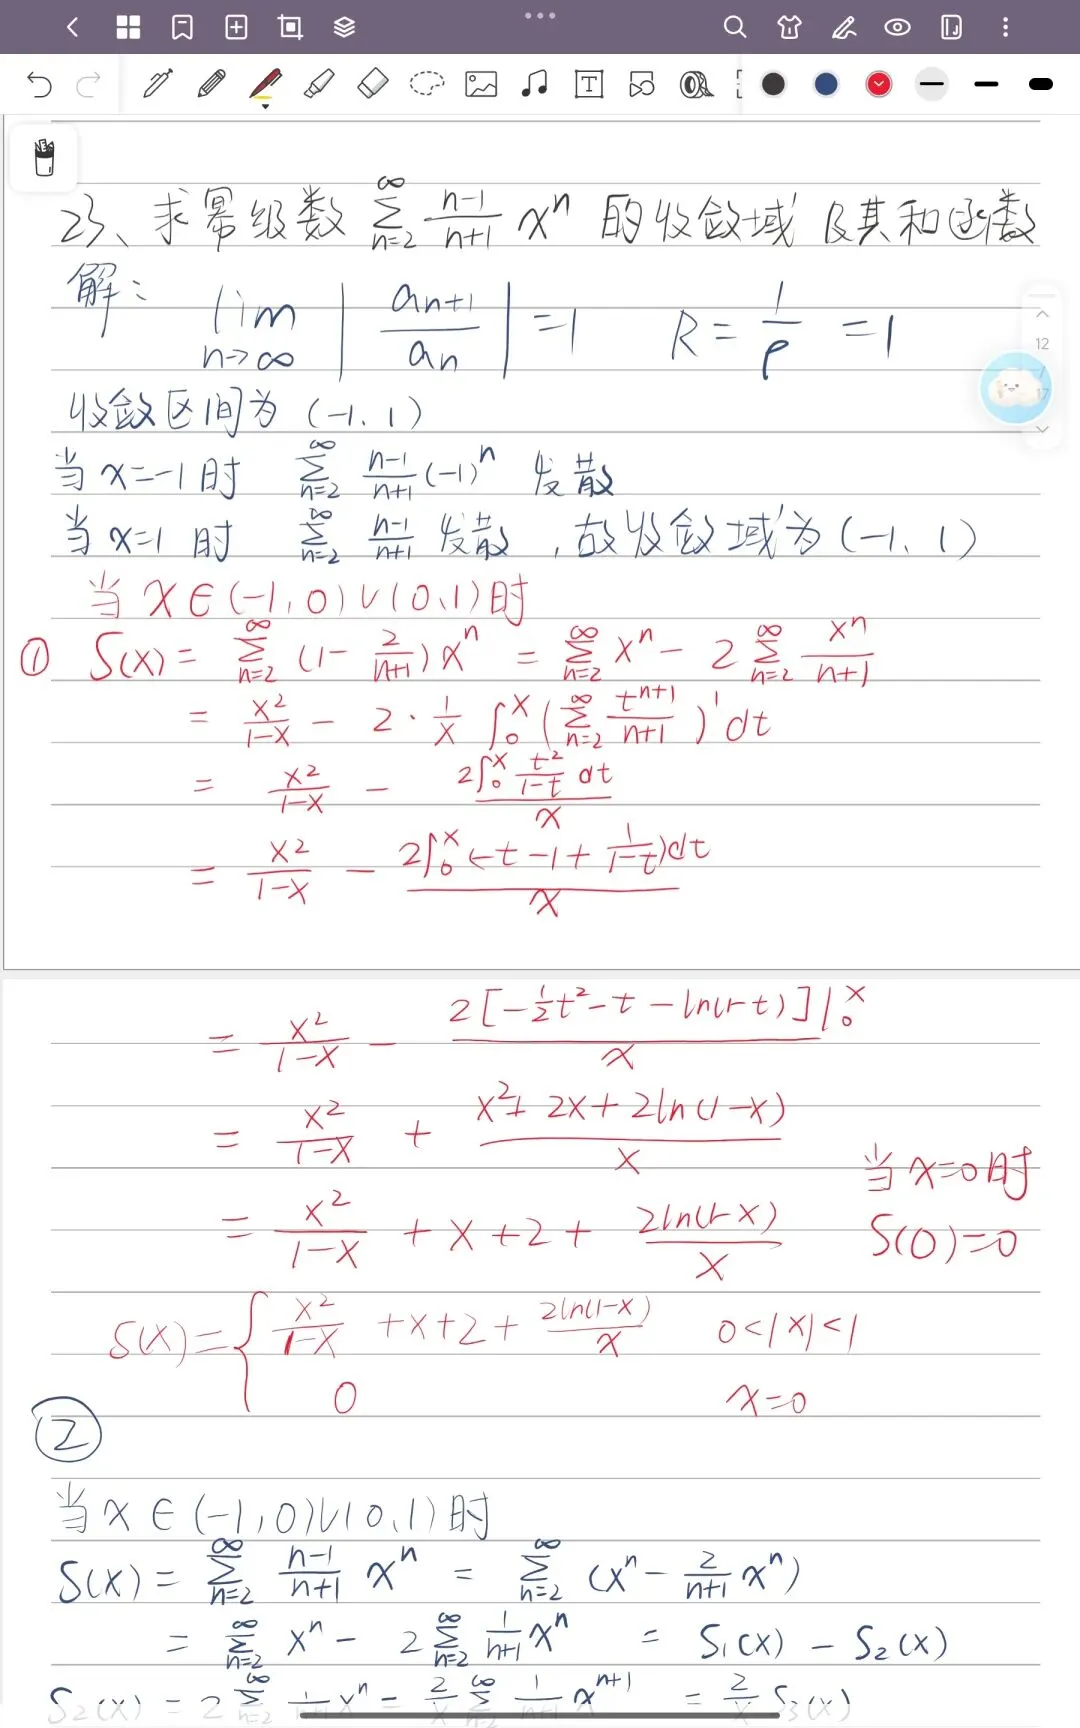 23、求幂级数 ∑_{n=2}^{∞} \frac{n-1}{n+1} x^n 的收敛域及其和函数
解: lim_{n→∞} |\frac{a_{n+1}}{a_n}| = 1 R = \frac{1}{ρ} = 1
12
17
收敛区间为 (-1, 1)
当 x=-1 时 ∑_{n=2}^{∞} \frac{n-1}{n+1} (-1)^n 发散
当 x=1 时 ∑_{n=2}^{∞} \frac{n-1}{n+1} 发散, 故收敛域为 (-1, 1)
当 x∈(-1,0)∪(0,1)时
① S(x) = ∑_{n=2}^{∞} (1- \frac{2}{n+1}) x^n = ∑_{n=2}^{∞} x^n - 2 ∑_{n=2}^{∞} \frac{x^n}{n+1}
= \frac{x^2}{1-x} - 2 · \frac{1}{x} ∫_0^x (∑_{n=2}^{∞} \frac{t^{n+1}}{n+1})' dt
= \frac{x^2}{1-x} - \frac{2∫_0^x \frac{t^2}{1-t} dt}{x}
= \frac{x^2}{1-x} - \frac{2∫_0^x (-t-1+\frac{1}{1-t})dt}{x}
= \frac{x^2}{1-x} - \frac{2[-\frac{1}{2}t^2-t-ln(1-t)]|_0^x}{x}
= \frac{x^2}{1-x} + \frac{x^2+2x+2ln(1-x)}{x}
当 x=0时
= \frac{x^2}{1-x} + x+2+ \frac{2ln(1-x)}{x}
S(0)=0
S(x)= { \frac{x^2}{1-x} +x+2+ \frac{2ln(1-x)}{x} 0<|x|<1
0 x=0
②
当 x∈(-1,0)∪(0,1)时
S(x) = ∑_{n=2}^{∞} \frac{n-1}{n+1} x^n = ∑_{n=2}^{∞} (x^n - \frac{2}{n+1} x^n)
= ∑_{n=2}^{∞} x^n - 2 ∑_{n=2}^{∞} \frac{1}{n+1} x^n = S_1(x) - S_2(x)
S_2(x) = 2 ∑_{n=2}^{∞} \frac{1}{n+1} x^n = \frac{2}{x} ∑_{n=2}^{∞} \frac{1}{n+1} x^{n+1} = \frac{2}{x} S_3(x)